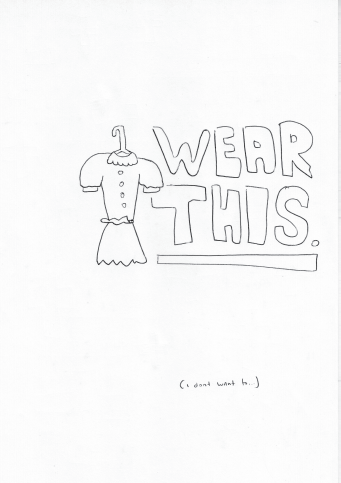 WEAR
THIS.
(i dont want to...)